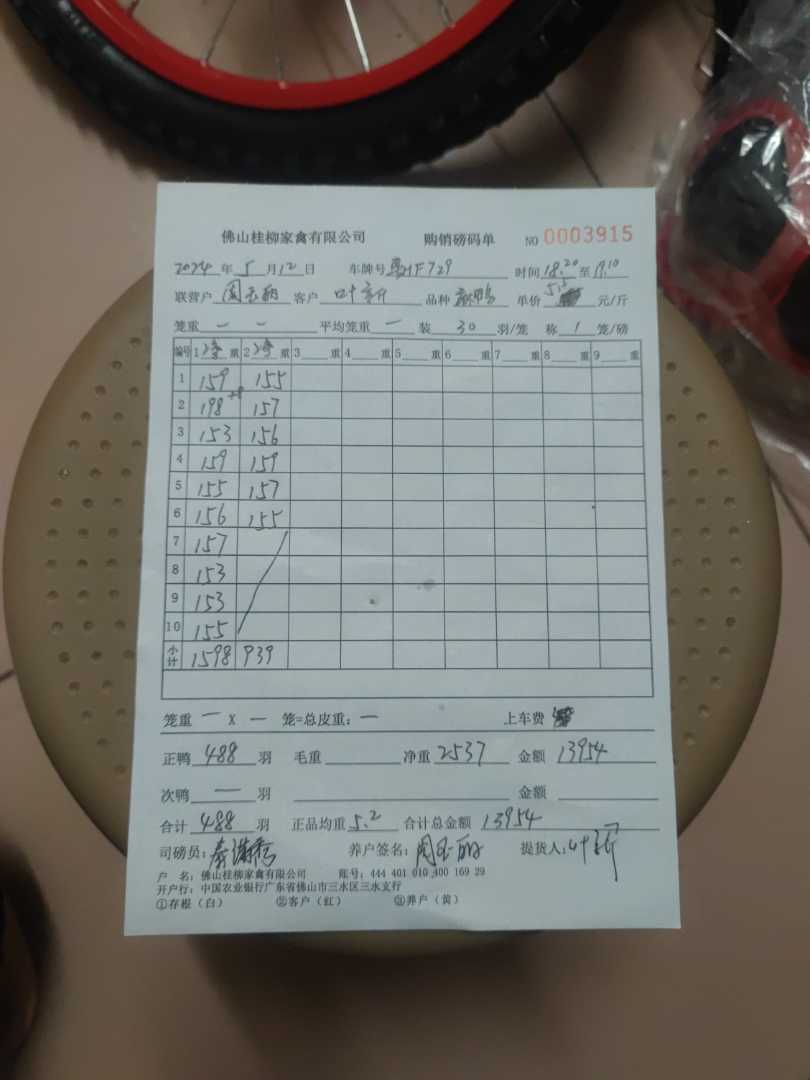 佛山桂柳家禽有限公司 购销磅码单 NO 0003915
2024年5月12日 车牌号 HF729 时间18:20至19:10
联营户 周玉丽 客户 叶新 品种 鸭 单价 5.5 元/斤
笼重 — — 平均笼重 — 装 30 羽/笼 称 1 笼/磅
编号 1净重 2净重 3 重 4 重 5 重 6 重 7 重 8 重 9 重
1 159 155
2 198+8 157
3 153 156
4 159 159
5 155 157
6 156 155
7 157
8 153
9 153
10 155
小计 1598 939
笼重 — X — 笼=总皮重: — 上车费
正鸭 488 羽 毛重 净重 2537 金额 13954
次鸭 — 羽 金额
合计 488 羽 正品均重 5.2 合计总金额 13954
司磅员: 养户签名: 周玉丽 提货人: 叶新
户 名: 佛山桂柳家禽有限公司 账号: 444 401 010 400 169 29
开户行: 中国农业银行广东省佛山市三水区三水支行
①存根(白) ②客户(红) ③养户(黄)